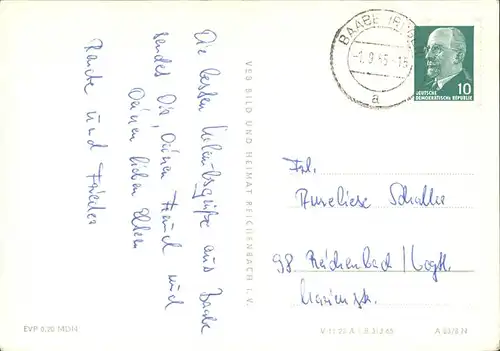 Die besten Urlaubsgrüße aus Baabe
sendet Dir, Deinen Freund und
Deinen lieben Eltern
Räute und Frieder
VEB BILD UND HEIMAT REICHENBACH I. V.
BAABE
a
DEUTSCHE
DEMOKRATISCHE REPUBLIK
10
Frl.
Anneliese Schaller
98 Reichenbach/Vogtl.
EVP 0,20 MDN